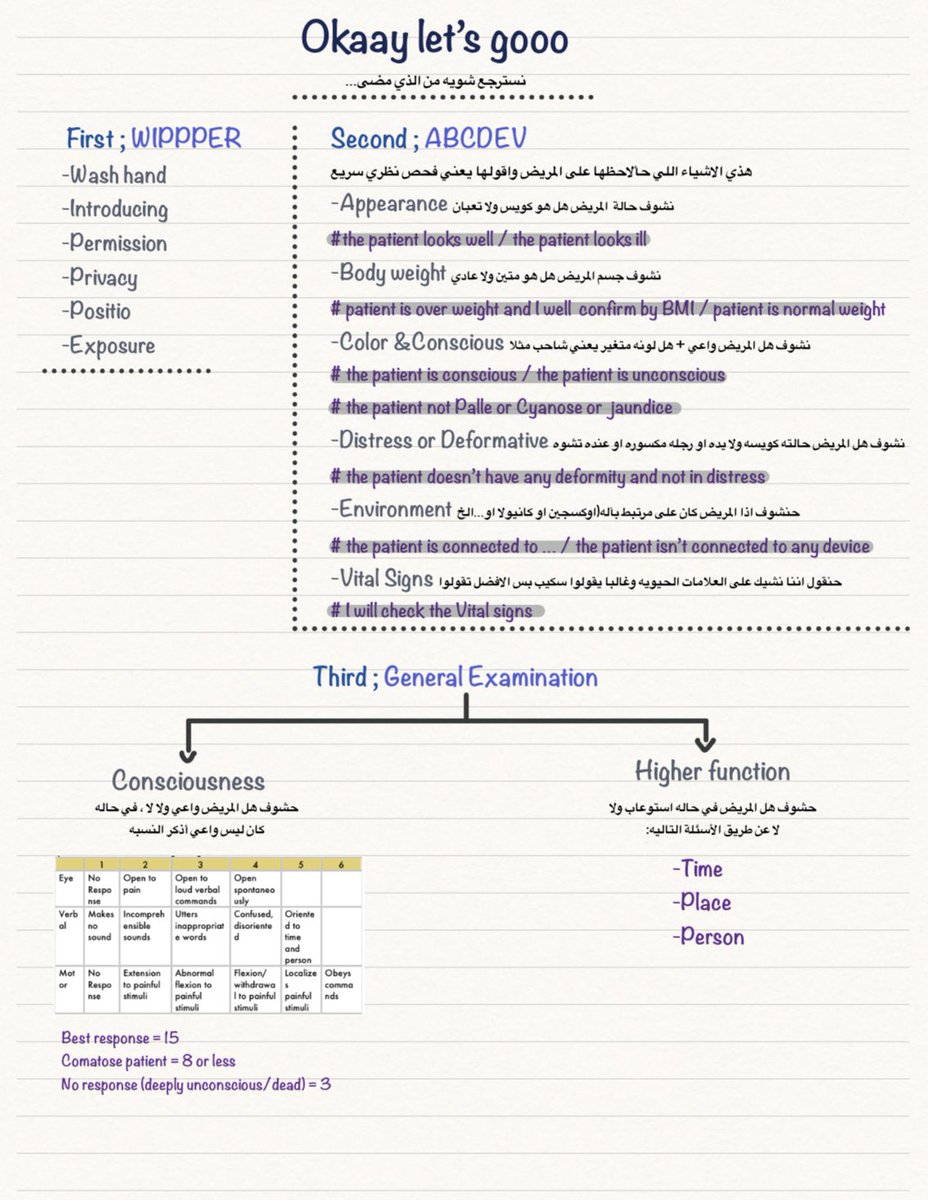 Okaay let's gooo
نسترجع شويه من الذي مضى...
First ; WIPPPER
-Wash hand
-Introducing
-Permission
-Privacy
-Positio
-Exposure
Second ; ABCDEV
هذي الاشياء اللي حألاحظها على المريض واقولها يعني فحص نظري سريع
-Appearance نشوف حالة المريض هل هو كويس ولا تعبان
#the patient looks well / the patient looks ill
-Body weight نشوف جسم المريض هل هو متين ولا عادي
# patient is over weight and I well confirm by BMI / patient is normal weight
-Color &Conscious نشوف هل المريض واعي + هل لونه متغير يعني شاحب مثلا
# the patient is conscious / the patient is unconscious
# the patient not Palle or Cyanose or jaundice
-Distress or Deformative نشوف هل المريض حالته كويسه ولا يده او رجله مكسوره او عنده تشوه
# the patient doesn't have any deformity and not in distress
-Environment حنشوف اذا المريض كان على مرتبط بآله(اوكسجين او كانيولا او...الخ
# the patient is connected to ... / the patient isn't connected to any device
-Vital Signs حنقول اننا نشيك على العلامات الحيويه وغالبا يقولوا سكيب بس الافضل تقولوا
# I will check the Vital signs
Third ; General Examination
Consciousness
حشوف هل المريض واعي ولا لا ، في حاله
كان ليس واعي أذكر النسبه
1 2 3 4 5 6
Eye No Response Open to pain Open to loud verbal commands Open spontaneously
Verbal Makes no sound Incomprehensible sounds Utters inappropriate words Confused, disoriented Oriented to time and person
Motor No Response Extension to painful stimuli Abnormal flexion to painful stimuli Flexion/withdrawal to painful stimuli Localizes painful stimuli Obeys commands
Best response = 15
Comatose patient = 8 or less
No response (deeply unconscious/dead) = 3
Higher function
حشوف هل المريض في حاله استوعاب ولا
لا عن طريق الأسئلة التاليه:
-Time
-Place
-Person